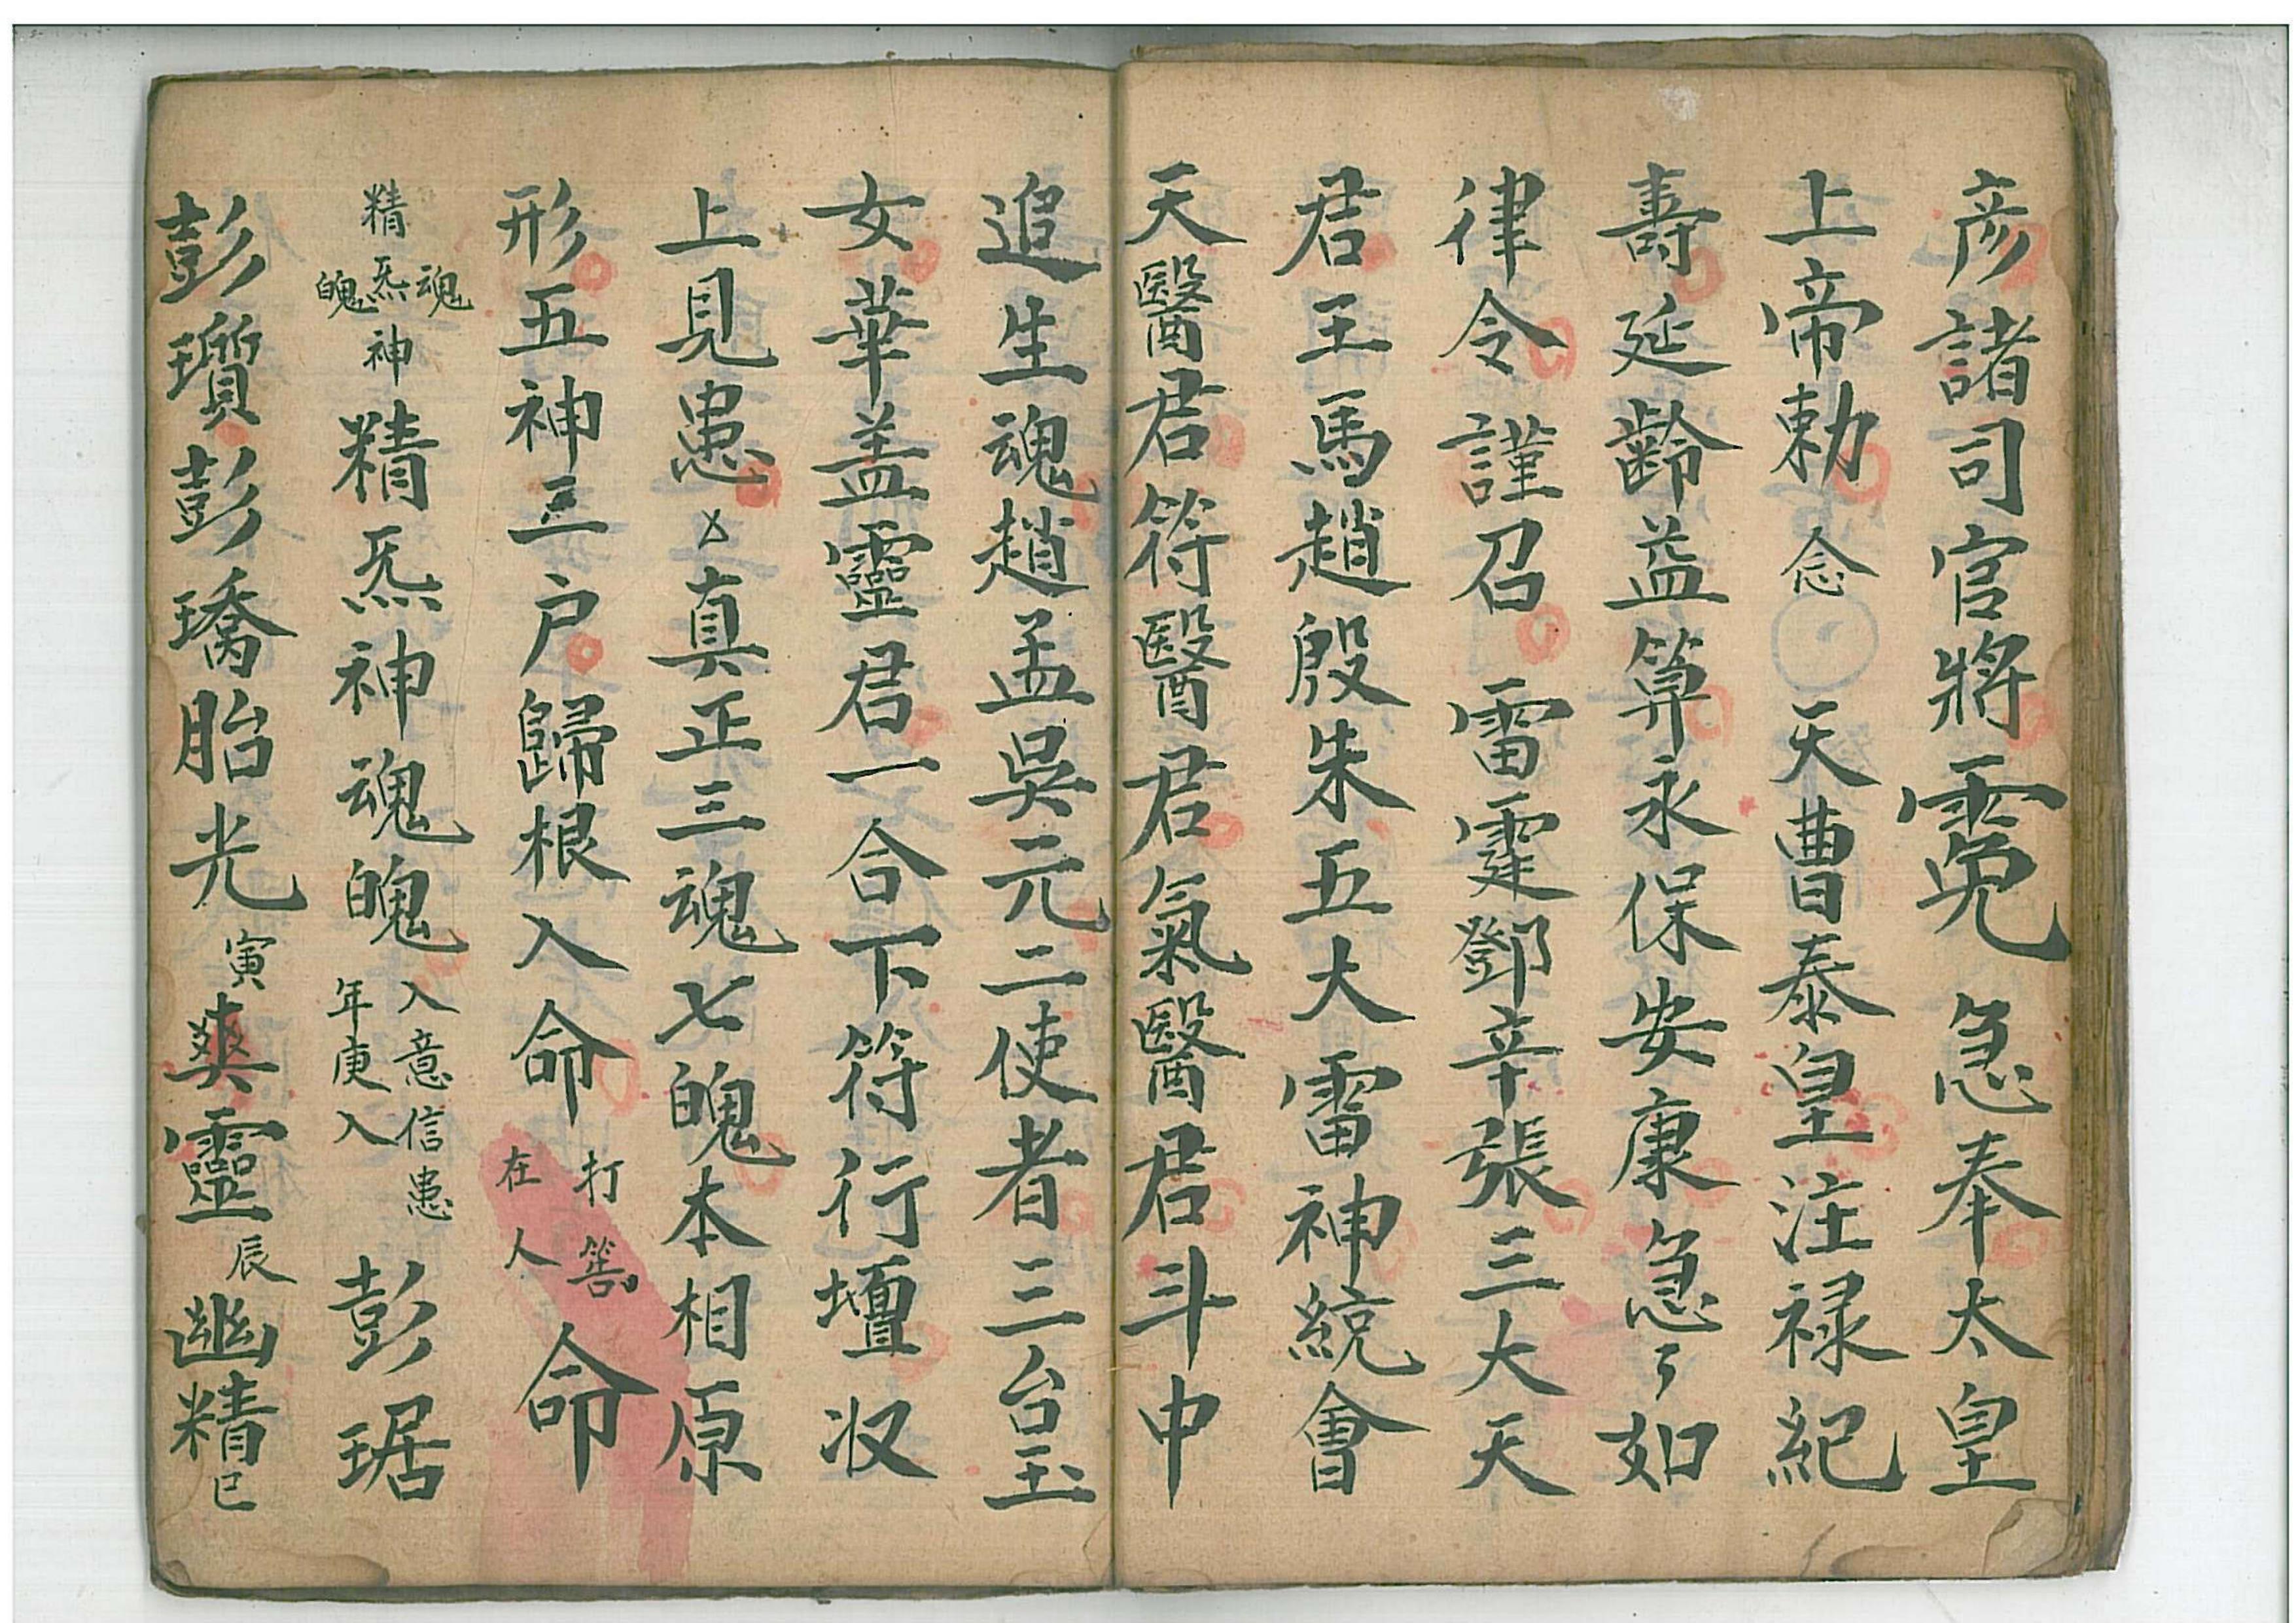 彦諸司官將䨥急奉太皇
上帝勅念天曹泰皇注禄紀
壽延齡益算永保安康急々如
律令謹召雷霆鄧辛張三大天
君王馬趙殷朱五大雷神統會
天醫君符醫君氣醫君斗中
追生魂趙孟吳元二使者三台玉
女華盖靈君一合下符行壇収
上見患㐅真正三魂七魄本相原
形五神三户歸根入命打筶在人命
精炁神魂魄精炁神魂魄入意信患年庚入彭琚
彭瓆彭璚胎光寅爽靈辰幽精巳